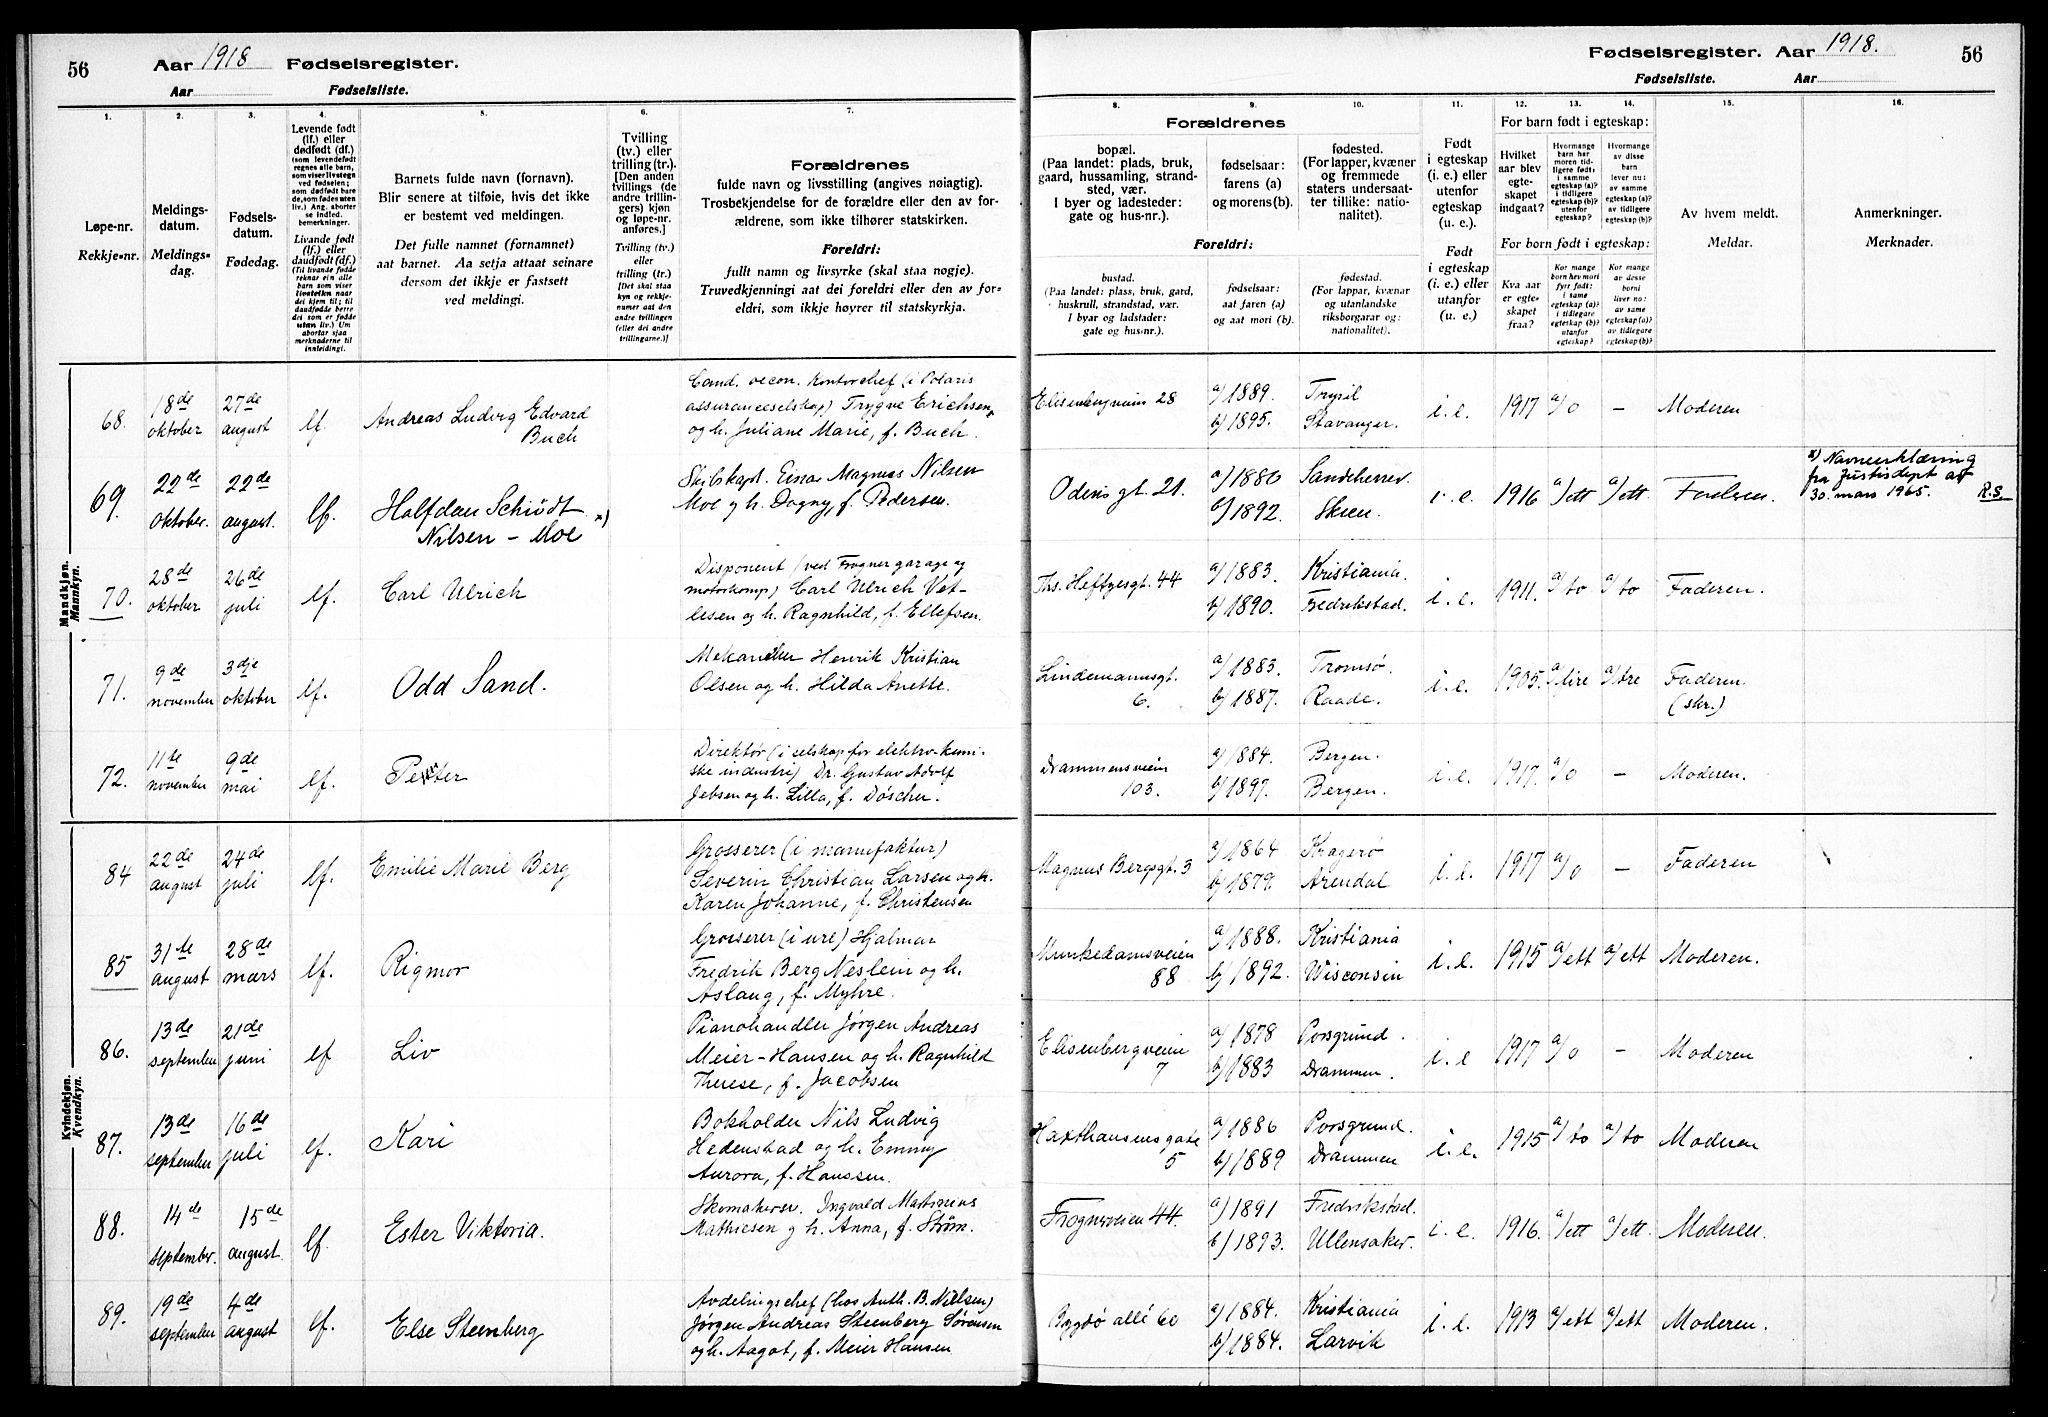 56
Aar 1918 Fødselsregister.
Aar Fødselsliste.
1.
2.
3.
4.
5.
6.
7.
Løpe-nr.
Rekkje-nr.
Meldings-
datum.
Meldings-
dag.
Fødsels-
datum.
Fødedag.
Levende født
(lf.) eller
dødfødt (df.)
Livande født
(lf.) eller
daudfødt (df.)
Barnets fulde navn (fornavn).
Blir senere at tilføie, hvis det ikke
er bestemt ved meldingen.
Det fulle namnet (fornamnet)
aat barnet. Aa setja attaat seinare
dersom det ikkje er fastsett
ved meldingi.
Tvilling
(tv.) eller
trilling (tr.).
[Den anden
tvillings (de
andre trillin-
gers) kjøn
og løpe-nr.
anføres.]
Tvilling (tv.)
eller
trilling (tr.)
Forældrenes
fulde navn og livsstilling (angives nøiagtig).
Trosbekjendelse for de forældre eller den av for-
ældrene, som ikke tilhører statskirken.
Foreldri:
fullt namn og livsyrke (skal staa nøgje).
Truvedkjenningi aat dei foreldri eller den av for-
eldri, som ikkje høyrer til statskyrkja.
Mandkjøn.
Mannkyn.
68. 18de oktober 27de august lf. Andreas Ludvig Edvard Buch
Cand. oecon. Kontorchef (i Polaris
assuranceselskap) Trygve Erichsen
og h. Juliane Marie, f. Buch.
69. 22de oktober. 22de august. lf. Halfdan Schiødt Nilsen - Moe x)
Skibskapt. Einar Magnus Nilsen
Moe og h. Dagny, f. Pedersen.
70. 28de oktober 26de juli lf. Carl Ulrich
Disponent (ved Frogner garage og
motorkomp) Carl Ulrich Vet-
lesen og h. Ragnhild, f. Ellefsen.
71. 9de november 3dje oktober lf. Odd Sand.
Mekaniker Henrik Kristian
Olsen og h. Hilda Anette.
72. 11te november 9de mai lf. Petter
Direktør (i selskap for elektro-kemi-
ske industri) Dr. Gustav Adolf
Jebsen og h. Lilla, f. Döscher.
Kvindekjøn.
Kvendkyn.
84 22de august 24de juli lf. Emilie Marie Berg
Grosserer (i manufaktur)
Severin Christian Larsen og h.
Karen Johanne, f. Christensen
85 31te august 28de mars lf. Rigmor
Grosserer (i ure) Hjalmar
Fredrik Berg Neslein og h.
Aslaug, f. Myhre.
86. 13de september 21de juni lf Liv
Pianohandler Jørgen Andreas
Meier-Hansen og h. Ragnhild
Therese, f. Jacobsen
87. 13de september 16de juli lf. Kari
Bokholder Nils Ludvig
Hedenstad og h. Emmy
Aurora, f. Hanssen.
88. 14de september. 15de august. lf. Ester Viktoria.
Skomakersv. Ingvald Martinius
Mathiesen og h. Anna, f. Strøm.
89. 19de september 4de august lf. Else Steenberg
Avdelingschef (hos Anth. B. Nielsen)
Jørgen Andreas Steenberg Sørensen
og h. Aagot, f. Meier Hansen
Fødselsregister. Aar 1918. 56
Fødselsliste. Aar
8.
9.
10.
11.
12.
13.
14.
15.
16.
Forældrenes
bopæl.
(Paa landet: plads, bruk,
gaard, hussamling, strand-
sted, vær.
I byer og ladesteder:
gate og hus-nr.).
fødselsaar:
farens (a)
og morens (b).
fødested.
(For lapper, kvæner
og fremmede
staters undersaat-
ter tillike: natio-
nalitet).
Foreldri:
bustad.
(Paa landet: plass, bruk, gard,
huskrull, strandstad, vær.
I byar og ladstader:
gate og hus-nr.).
fødselsaar:
aat faren (a)
og aat mori (b).
fødestad.
(For lappar, kvænar
og utanlandske
riksborgarar og:
nationalitet).
Født
i egteskap
(i. e.) eller
utenfor
egteskap
(u. e.).
Født
i egteskap
(i. e.) eller
utanfor
egteskap
(u. e.)
For barn født i egteskap:
Hvilket
aar blev
egte-
skapet
indgaat?
For born født i egteskap:
Kva aar
er egte-
skapet
fraa?
Av hvem meldt.
Meldar.
Anmerkninger.
Merknader.
Elisenbergveien 28 a/1889. b/1895. Trysil Stavanger. i. e. 1917 a/0 - Moderen
Odins gt. 21. a/1880 b/1892. Sandeherred. Skien. i. e. 1916 a/ett a/ett. Faderen. x) Navneerklæring fra Justisdept av 30. mars 1965. R.S.
Ths. Heftyesgt. 44 a/1883. b/1890. Kristiania. Fredrikstad. i. e. 1911. a/to a/to Faderen.
Lindemannsgt. 6. a/1883. b/1887. Tromsø. Raade. i. e. 1905. a/fire a/tre Faderen (skr.)
Drammensveien 103. a/1884. b/1897. Bergen. Bergen. i. e. 1917. a/0 - Moderen.
Magnus Bergsgt. 3 a/1864 b/1879. Kragerø Arendal i. e. 1917 a/0 - Faderen
Munkedamsveien 88 a/1888. b/1892. Kristiania Wisconsin i. e. 1915 a/ett a/ett Moderen.
Elisenbergveien 7 a/1878 b/1883 Porsgrund. Drammen. i. e 1917 a/0 - Moderen
Haxthausensgate 5 a/1886 b/1889 Porsgrund. Drammen i. e. 1915 a/to a/to Moderen
Frognerveien 44. a/1891 b/1893. Fredrikstad. Ullensaker. i. e. 1916. a/ett a/ett. Moderen.
Bygdø allé 60 a/1884. b/1884. Kristiania Larvik i. e. 1913 a/ett a/ett Moderen.